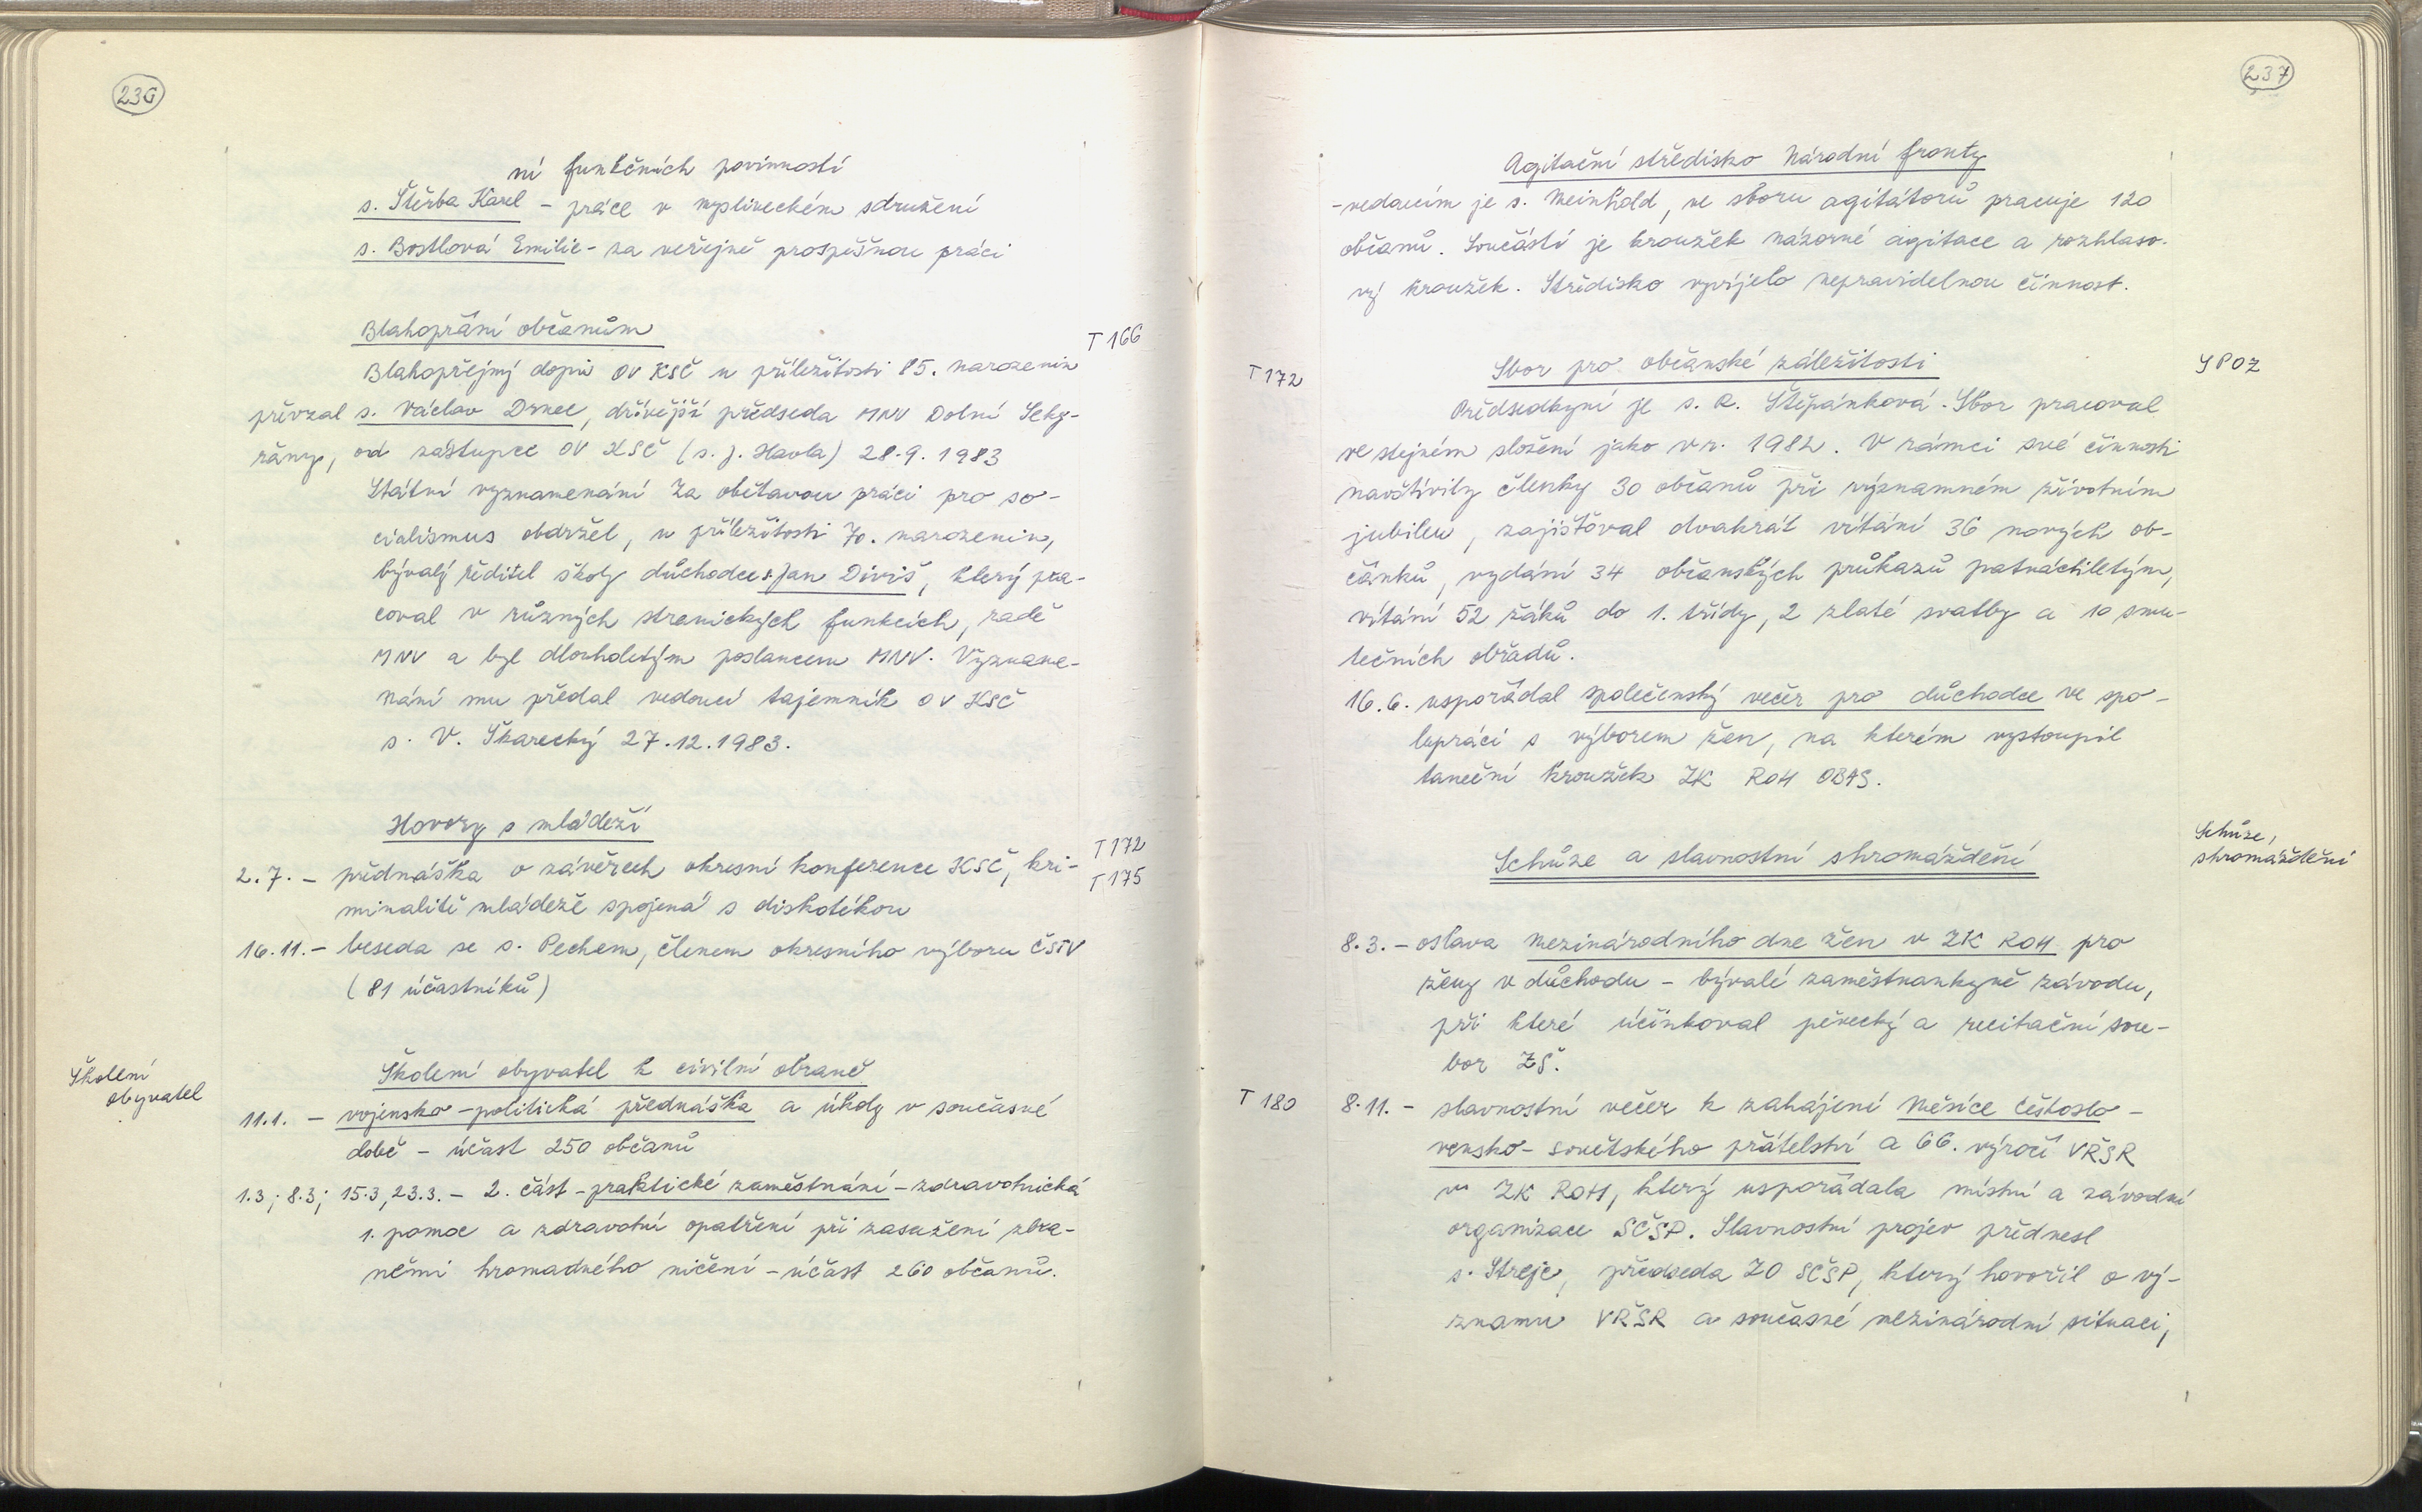 236
ní funkčních povinností
s. Štěrba Karel – práce v mysliveckém sdružení
s. Bostlová Emilie – za veřejně prospěšnou práci
Blahopřání občanům
T 166
Blahopřejný dopis OV KSČ u příležitosti 85. narozenin
převzal s. Václav Drnec, dřívější předseda MNV Dolní Seky-
řany, od zástupce OV KSČ (s. J. Havla) 28.9.1983
Státní vyznamenání Za obětavou práci pro so-
cialismus obdržel, u příležitosti 70. narozenin,
bývalý ředitel školy důchodce s. Jan Diviš, který pra-
coval v různých stranických funkcích, radě
MNV a byl dlouholetým poslancem MNV. Vyzname-
nání mu předal vedoucí tajemník OV KSČ
s. V. Škarecký 27.12.1983.
Hovory s mládeží
T 172
2.7. – přednáška o závěrech okresní konference KSČ, kri-
T 175
minalitě mládeže spojená s diskotékou
16.11. – beseda se s. Pechem, členem okresního výboru ČSTV
(81 účastníků)
Školení
obyvatel
Školení obyvatel k civilní obraně
11.1. – vojensko-politická přednáška a úkoly v současné
době – účast 250 občanů
1.3; 8.3; 15.3, 23.3. – 2. část – praktické zaměstnání – zdravotnická
1. pomoc a zdravotní opatření při zasažení zbra-
němi hromadného ničení – účast 260 občanů.
237
Agitační středisko Národní fronty
- vedoucím je s. Meinhold, ve sboru agitátorů pracuje 120
občanů. Součástí je kroužek názorné agitace a rozhlaso-
vý kroužek. Středisko vyvíjelo nepravidelnou činnost.
T 172
Sbor pro občanské záležitosti
SPOZ
Předsedkyní je s. R. Štěpánková. Sbor pracoval
ve stejném složení jako v r. 1982. V rámci své činnosti
navštívily členky 30 občanů při významném životním
jubileu, zajišťoval dvakrát vítání 36 nových ob-
čánků, vydání 34 občanských průkazů patnáctiletým,
vítání 52 žáků do 1. třídy, 2 zlaté svatby a 10 smu-
tečních obřadů.
16.6. uspořádal společenský večer pro důchodce ve spo-
lupráci s výborem žen, na kterém vystoupil
taneční kroužek ZK ROH OBAS.
Schůze a slavnostní shromáždění
Schůze,
shromáždění
8.3. – oslava Mezinárodního dne žen v ZK ROH pro
ženy v důchodu – bývalé zaměstnankyně závodu,
při které účinkoval pěvecký a recitační sou-
bor ZŠ.
T 180
8.11. – slavnostní večer k zahájení Měsíce českoslo-
vensko-sovětského přátelství a 66. výročí VŘSR
v ZK ROH, který uspořádala místní a závodní
organizace SČSP. Slavnostní projev přednesl
s. Streje, předseda ZO SČSP, který hovořil o vý-
znamu VŘSR a současné mezinárodní situaci,